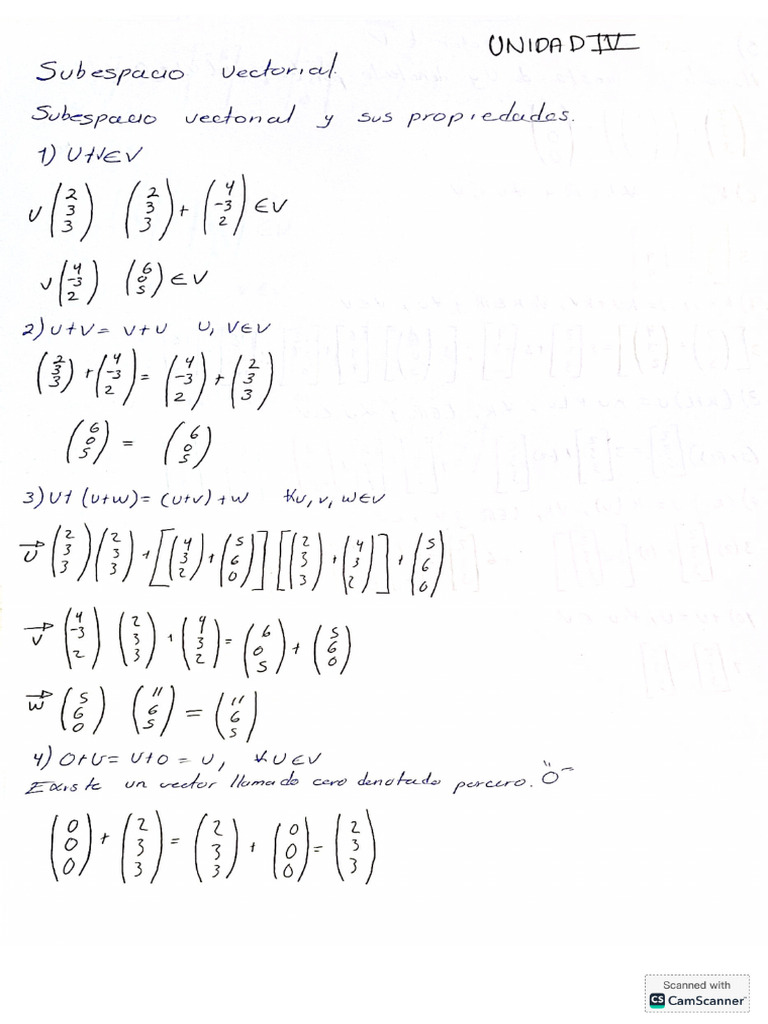 UNIDAD IV
Subespacio vectorial.
Subespacio vectorial y sus propiedades.
1) U+V∈V
U (2 3 3) (2 3 3) + (4 -3 2) ∈V
V (4 -3 2) (6 0 5) ∈ V
2) U+V = V+U U, V∈V
(2 3 3) + (4 -3 2) = (4 -3 2) + (2 3 3)
(6 0 5) = (6 0 5)
3) U+ (U+W) = (U+V) + W ∀u, v, w∈v
U (2 3 3) (2 3 3) + [(4 3 2) + (5 6 0)] [(2 3 3) + (4 3 2)] + (5 6 0)
V (4 -3 2) (2 3 3) + (4 3 2) = (6 0 5) + (5 6 0)
W (5 6 0) (11 6 5) = (11 6 5)
4) O+U = U+O = U, ∀U∈V
Existe un vector llamado cero denotado por cero. "O"
(0 0 0) + (2 3 3) = (2 3 3) + (0 0 0) = (2 3 3)
Scanned with
CS CamScanner